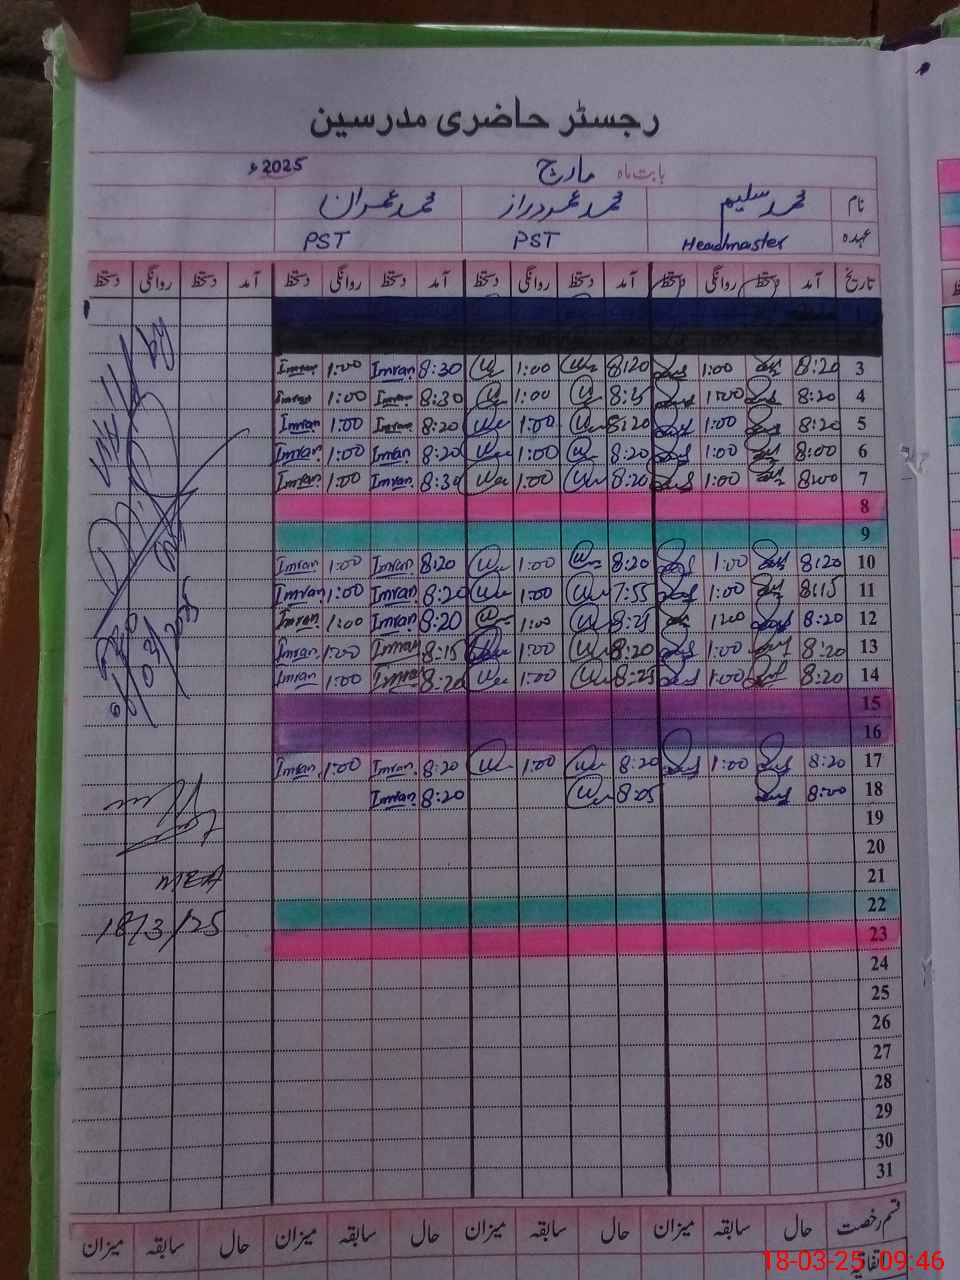 رجسٹر حاضری مدرسین
بابت ماہ مارچ 2025ء
نام محمد سلیم محمد عمر دراز محمد عمران
عہدہ Headmaster PST PST
تاریخ آمد دستخط روانگی دستخط آمد دستخط روانگی دستخط آمد دستخط روانگی دستخط آمد دستخط روانگی دستخط
3 8:20 1:00 8:20 1:00 8:30 Imran 1:00 Imran
4 8:20 1:00 8:15 1:00 8:30 Imran 1:00 Imran
5 8:20 1:00 8:20 1:00 8:20 Imran 1:00 Imran
6 8:00 1:00 8:20 1:00 8:20 Imran 1:00 Imran
7 8:00 1:00 8:20 1:00 8:30 Imran 1:00 Imran
8
9
10 8:20 1:00 8:20 1:00 8:20 Imran 1:00 Imran
11 8:15 1:00 7:55 1:00 8:20 Imran 1:00 Imran
12 8:20 1:00 8:25 1:00 8:20 Imran 1:00 Imran
13 8:20 1:00 8:20 1:00 8:15 Imran 1:00 Imran
14 8:20 1:00 8:25 1:00 8:20 Imran 1:00 Imran
15
16
17 8:20 1:00 8:20 1:00 8:20 Imran 1:00 Imran
18 8:00 8:05 8:20 Imran
19
20
21
22
23
24
25
26
27
28
29
30
31
MEA
18/3/25
قسم رخصت حال سابقہ میزان حال سابقہ میزان حال سابقہ میزان حال سابقہ میزان
اتفاقیہ
18-03-25 09:46